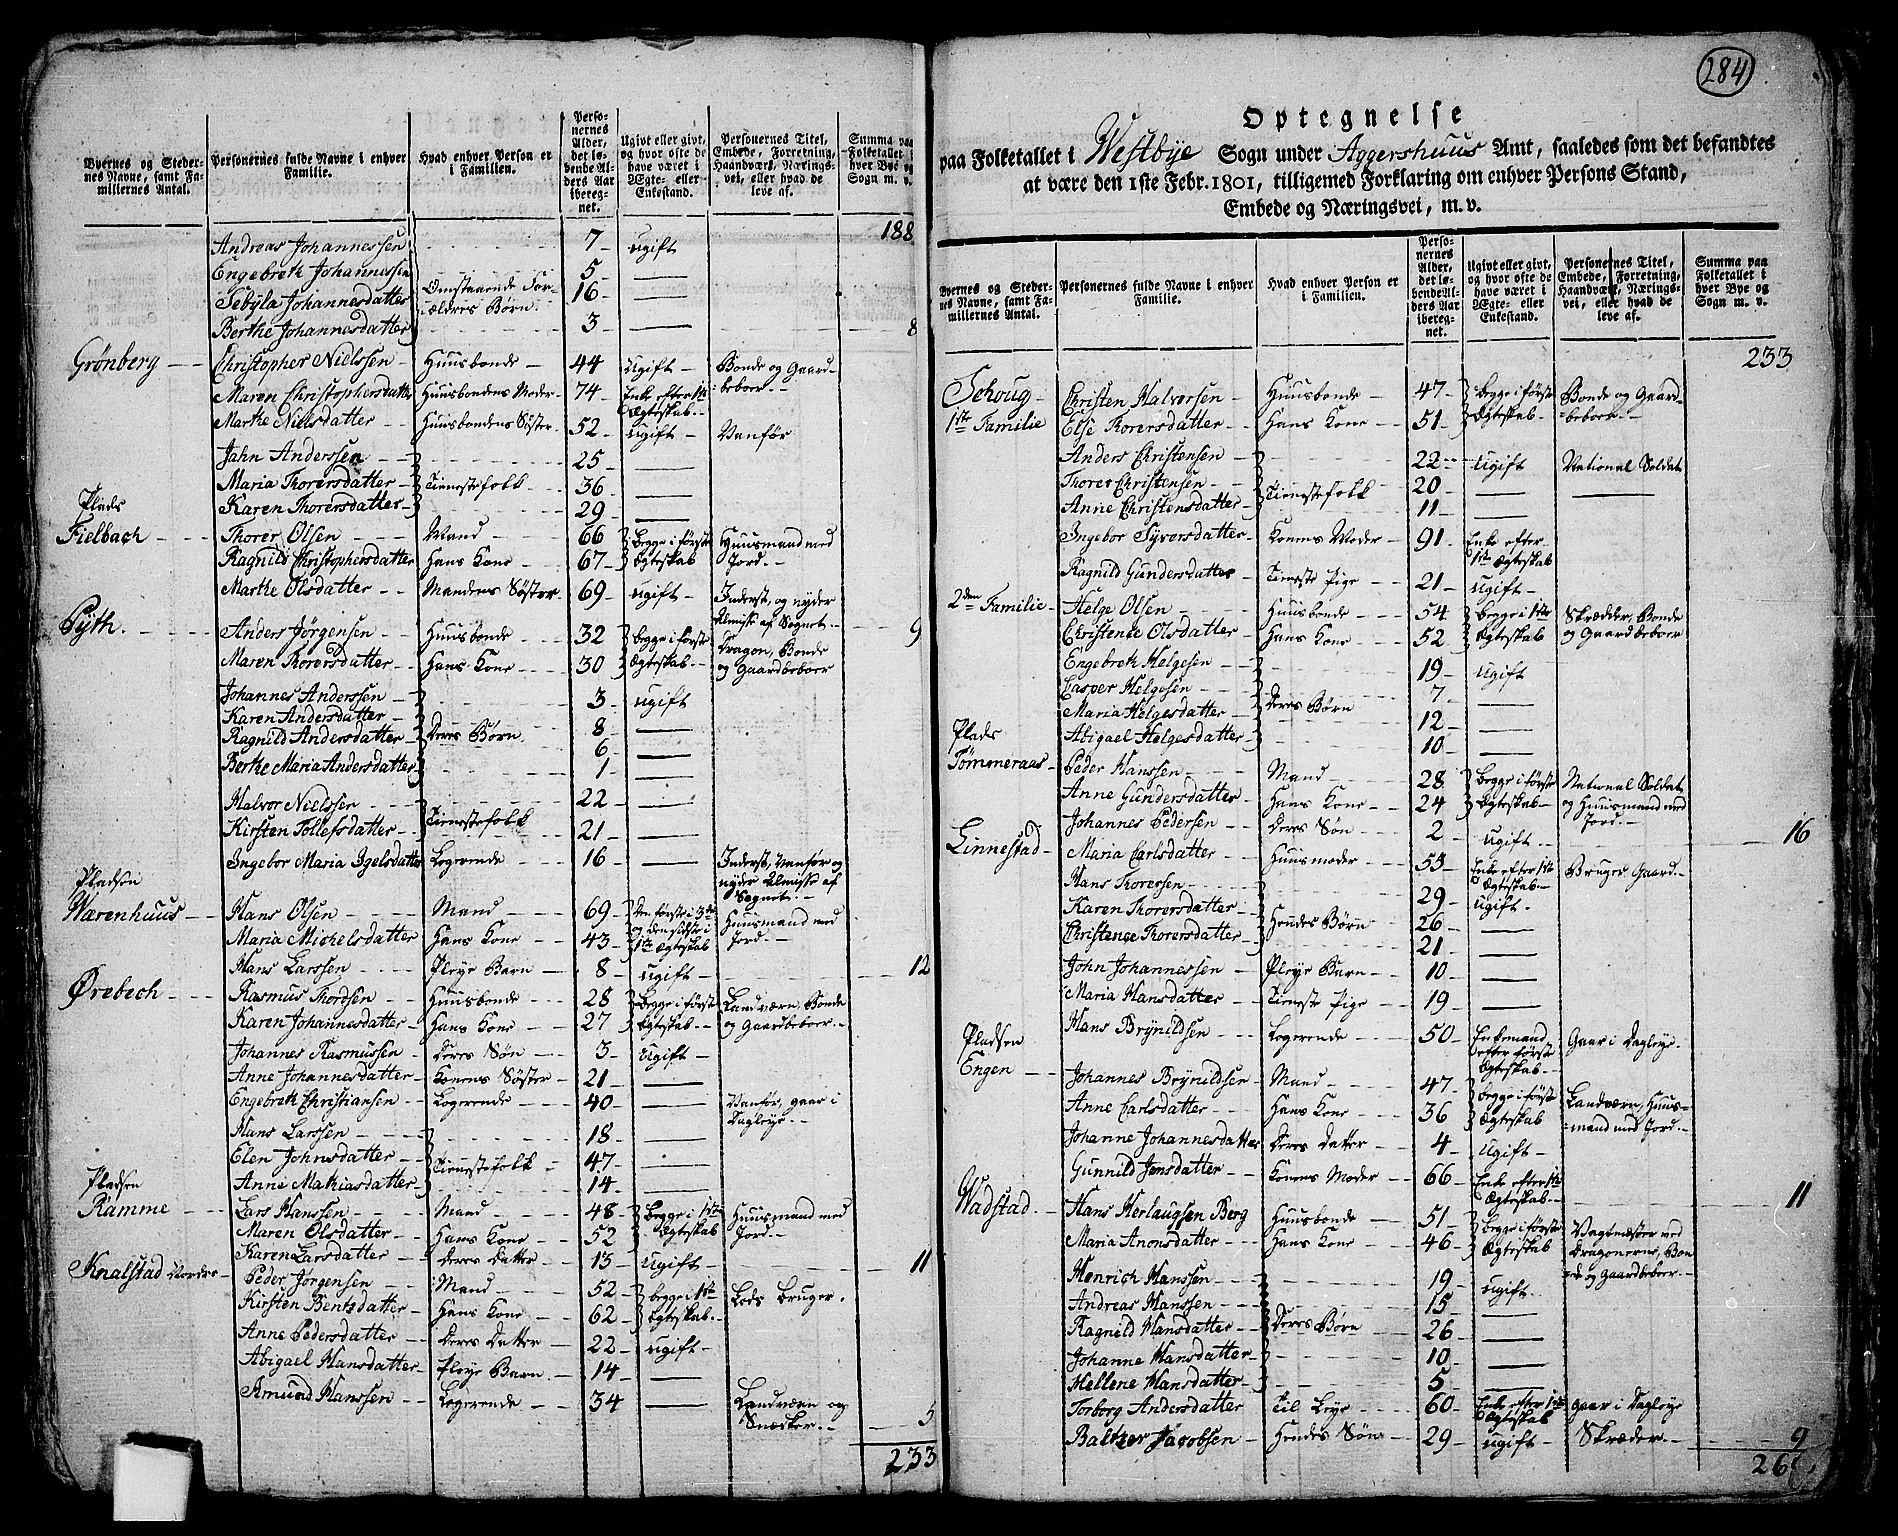 284
Byernes og Steder-
nes Navne, samt Fa-
millernes Antal.
Personernes fulde Navne i enhver
Familie.
Hvad enhver Person er
i Familien.
Perso-
nernes
Alder,
det lø-
bende Al-
ders Aar
iberegnet.
Ugivt eller givt,
og hvor ofte de
have været i
Ægte- eller
Enkestand.
Personernes Titel,
Embede, Forretning,
Haandværk, Nærings-
vei, eller hvad de
leve af.
Summa paa
Folketallet i
hver Bye og
Sogn m. v.
188
Andreas Johannessen 7 ugift
Engebreth Johannessen 5
Sebyla Johannesdatter Omstaaende For- 16
ældres Børn.
Berthe Johannesdatter 3 8
Grønberg Christopher Nielssen Huusbonde 44 ugift Bonde og Gaard-
beboer
Maren Christophersdatter Huusbondens Moder 74 Enke efter 1ste
Ægteskab
Marthe Nielsdatter Huusbondens Søster 52 ugift Vanfør
Jahn Anderssen 25
Maria Thorersdatter Tienestefolk 36
Karen Thorersdatter 29
Plads
Fielbach Thorer Olsen Mand 66 begge i første Huusmand med
Ragnild Christophersdatter Hans Kone 67 Egteskab Jord.
Marthe Olsdatter Mandens Søster 69 ugift Inderst, og nyder
Almisse af Sognet. 9
Pyth. Anders Jørgensen Huusbonde 32 begge i første Dragon, Bonde
Maren Thorersdatter Hans Kone 30 Ægteskab og Gaardbeboer
Johannes Anderssen 3 ugift
Karen Andersdatter 8
Ragnild Andersdatter Deres Børn 6
Berthe Maria Andersdatter 1
Halvor Nielssen 22
Kirsten Tollefsdatter Tienestefolk 21
Ingebor Maria Igelsdatter Logerende 16 Inderst, Vanfør og
nyder Almisse af
Sognet.
Pladsen
Warenhuus Hans Olsen Mand 69 Den første i 3die Huusmand med
og den sidste i
Maria Michelsdatter Hans Kone 43 1ste Ægteskab Jord.
Hans Larssen Pleye Barn 8 ugift 12
Ørebech Rasmus Thordsen Huusbonde 28 begge i første Landværn, Bonde
Karen Johannesdatter Hans Kone 27 Ægteskab og Gaardbeboer.
Johannes Rasmussen Deres Søn 3 ugift
Anne Johannesdatter Konens Søster 21
Engebreth Christiansen Logerende 40 Vanfør, gaar i
Dagleye.
Hans Larssen 18
Elen Johnsdatter Tienestefolk 47
Anne Mathiasdatter 14
Pladsen
Ramme Lars Hanssen Mand 48 begge i 1ste Huusmand med
Maren Olsdatter Hans Kone 52 Ægteskab Jord.
Karen Larsdatter Deres Datter 13 ugift 11
Knalstad Nordre Peder Jørgensen Mand 52 begge i 1ste Lods bruger.
Kirsten Bentsdatter Hans Kone 62 Egteskab.
Anne Pedersdatter Deres Datter 22 ugift
Abigael Hansdatter Pleye Barn 14
Amund Hanssen Logerende 34 Landværn og
Snedker. 5
233
Optegnelse
paa Folketallet i Westbye Sogn under Aggershuus Amt, saaledes som det befandtes
at være den 1ste Febr. 1801, tilligemed Forklaring om enhver Persons Stand,
Embede og Næringsvei, m. v.
Byernes og Steder-
nes Navne, samt Fa-
millernes Antal.
Personernes fulde Navne i enhver
Familie.
Hvad enhver Person er
i Familien.
Perso-
nernes
Alder,
det lø-
bende Al-
ders Aar
ibereg-
net.
Ugivt eller givt,
og hvor ofte de
have været i
Ægte- eller
Enkestand.
Personernes Titel,
Embede, Forretning,
Haandværk, Nærings-
vei, eller hvad de
leve af.
Summa paa
Folketallet i
hver Bye og
Sogn m. v.
233
Sehoug Christen Halvorsen Huusbonde 47 begge i første Bonde og Gaard-
1ste Familie Else Thorersdatter Hans Kone 51 Ægteskab beboer
Anders Christensen 22 ugift National Soldat
Thorer Christensen Tienestefolk 20
Anne Christensdatter 11
Ingebor Syversdatter Konens Moder 91 Enke efter
1ste Egteskab
Ragnild Gundersdatter Tieneste Pige 21 ugift
2den Familie Helge Olsen Huusbonde 54 begge i 1ste Skrædder, Bonde
Christence Olsdatter Hans Kone 52 Ægteskab og Gaardbeboer
Engebreth Helgesen 19 ugift
Casper Helgesen Deres Børn 7
Maria Helgesdatter 12
Plads Abigael Helgesdatter 10
Tømmeraas Peder Hanssen Mand 28 begge i første National Soldat
Anne Gundersdatter Hans Kone 24 Ægteskab og Huusmand med
Johannes Pedersen Deres Søn 2 ugift. Jord. 16
Linnestad Maria Carlsdatter Huusmoder 53 Enke efter 1ste Bruger Gaard.
Egteskab
Hans Thorersen 29 ugift.
Karen Thorersdatter Hendes Børn 26
Christence Thorersdatter 21
John Johannessen Pleye Barn 10
Maria Hansdatter Tieneste Pige 19
Hans Brynildsen Logerende 50 Enkemand Gaar i Dagleye.
efter første
Ægteskab
Pladsen
Engen Johannes Brynildsen Mand 47 begge i første Landværn, Huus-
Anne Carlsdatter Hans Kone 36 Ægteskab mand med Jord.
Johanne Johannesdatter Deres Datter 4 ugift
Gunnild Jensdatter Konens Moder 66 Enke efter 1ste
Ægteskab 11
Wadstad Hans Herlaugsen Berg Huusbonde 51 begge i første Vagtmester ved
Maria Aronsdatter Hans Kone 46 Ægteskab Dragonerne, Bon-
de og Gaardbeboer
Henrich Hanssen 19 ugift.
Andreas Hanssen 15
Ragnild Hansdatter Deres Børn 26
Johanne Hansdatter 10
Hellene Hansdatter 5
Torborg Andersdatter Til Leye 60 Enke efter 1ste gaar i Dagleye
Ægteskab
Baltzer Jacobsen Hendes Søn 29 ugift Skræder. 9
26